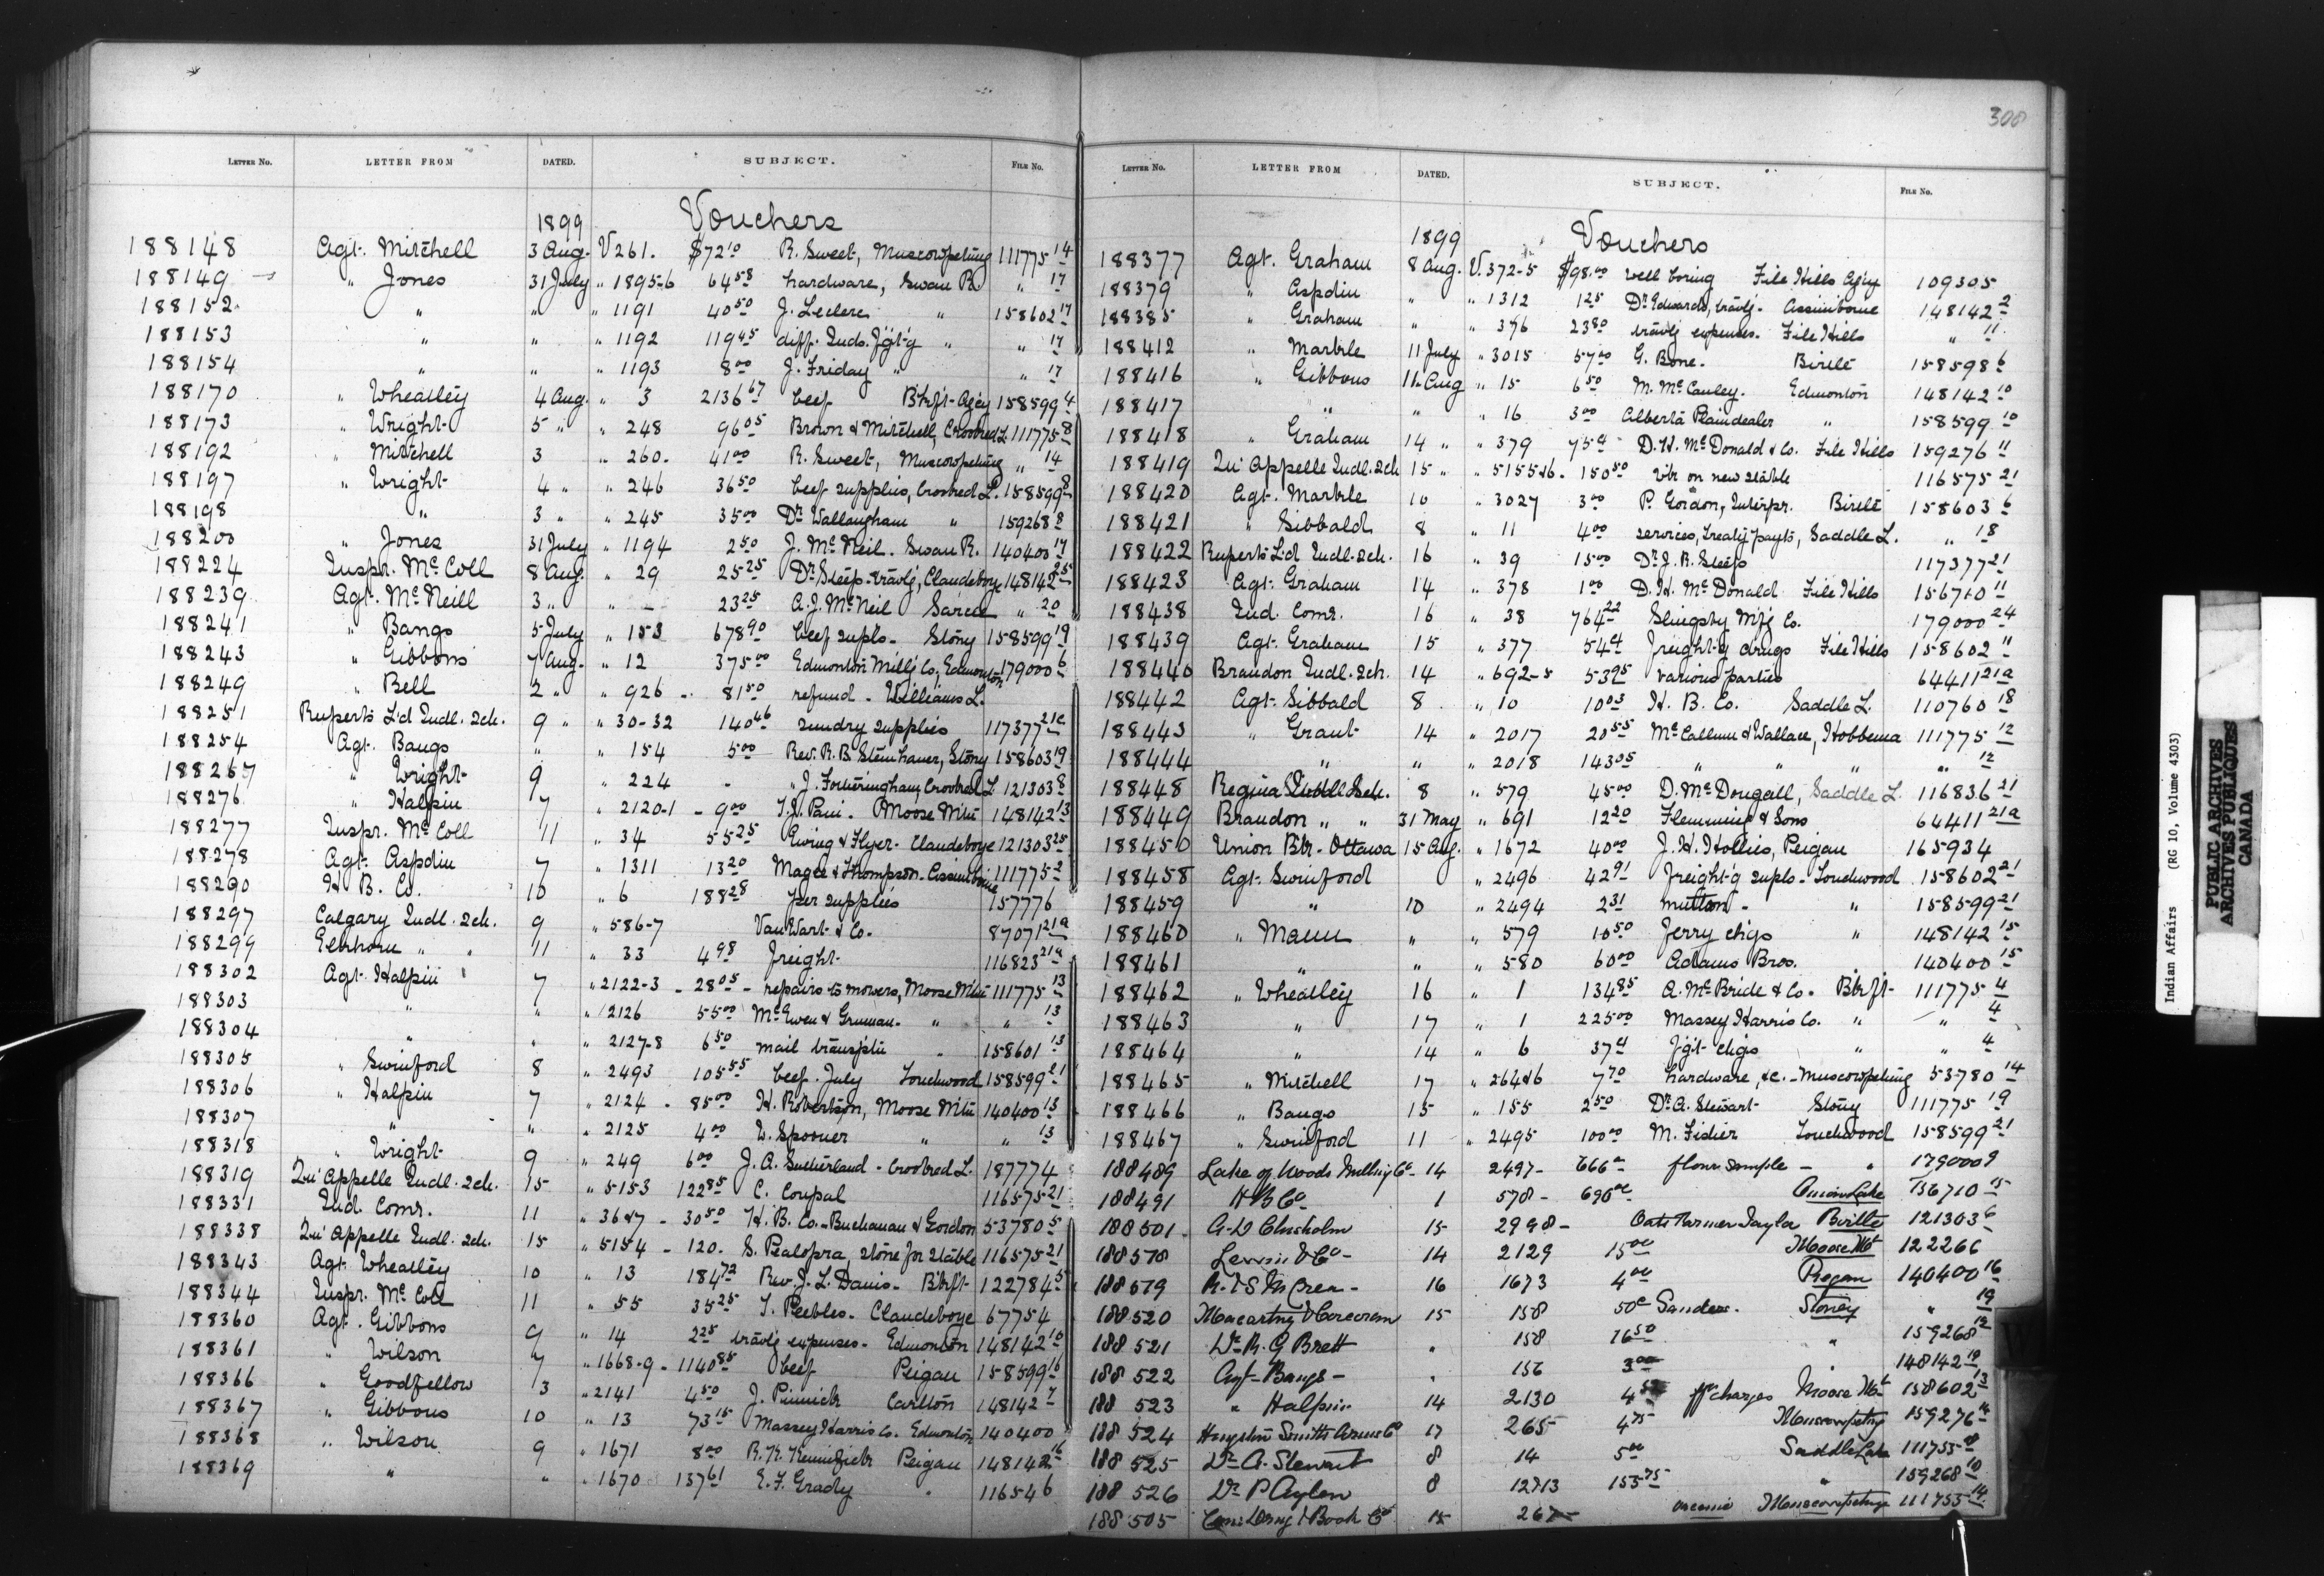 308
LETTER No. LETTER FROM DATED. SUBJECT. FILE No.
1899 Vouchers
188148 Agt. Mitchell 3 Aug. V 261. $72 10 R. Sweet, Muscowpetung 111775 14
188149 " Jones 31 July " 1895-6 64 58 hardware, Swan R. " 17
188152 " " " 1191 40 50 J. Leclerc " 158602 17
188153 " " " 1192 119 45 diff. Inds. f'gt-g " " 17
188154 " " " 1193 8 00 J. Friday " " 17
188170 " Wheatley 4 Aug. " 3 2136 67 beef B'kf't Agcy 158599 4
188173 " Wright 5 " " 248 96 05 Brown & Mitchell, Crooked L. 111775 8
188192 " Mitchell 3 " 260. 41 00 R. Sweet, Muscowpetung " 14
188197 " Wright 4 " " 246 36 50 beef supplies, Crooked L. 158599 8
188198 " 3 " " 245 35 00 Dr. Wallaugham " 159268 8
188200 " Jones 31 July " 1194 2 50 J. McNeil. Swan R. 140400 17
188224 Inspr. McColl 8 Aug. " 29 25 25 Dr. Steep. trav'lg, Clandeboye 148142 25
188239 Agt. McNeill 3 " " - 23 25 A. J. McNeil Sarcee " 20
188241 " Bangs 5 July " 153 678 90 beef supls. Stony 158599 19
188243 " Gibbons 7 Aug. " 12 375 00 Edmonton Mill'g Co., Edmonton 179000 6
188249 " Bell 2 " " 926 - 81 50 refund - Williams L.
188251 Ruperts L'd Indl. Sch. 9 " " 30-32 140 46 sundry supplies 117377 21c
188254 Agt. Bangs " " 154 5 00 Rev. R. B. Steinhauer, Stony 158603 19
188267 " Wright 9 " 224 - " J. Fotheringham, Crooked L 121303 8
188276 " Halpin 7 " 2120-1 - 9 00 Moose Mtn 148142 13
188277 Inspr. McColl 11 " 34 55 25 Ewing & Flyer. Clandeboye 121303 25
188278 Agt. Aspdin 7 " 1311 13 20 Magee & Thompson. Assiniboine 111775 2
188290 H. B. Co. 10 " 6 188 28 per supplies 157776
188297 Calgary Indl. Sch. 9 " 586-7 Van Wart & Co. 87071 21a
188299 Elkhorn " " 11 " 33 4 98 freight 116823 21a
188302 Agt. Halpin 7 " 2122-3 - 28 05 - repairs to mowers, Moose Mtn 111775 13
188303 " " " 2126 55 00 McEwen & Gruman. " " 13
188304 " " " 2127-8 6 50 mail transp'tn " 158601 13
188305 " Swinford 8 " 2493 105 55 beef. July Touchwood 158599 21
188306 " Halpin 7 " 2124 - 85 00 H. Robertson, Moose Mtn 140400 13
188307 " " " 2125 4 00 W. Spooner " " 13
188318 " Wright 9 " 249 6 00 J. A. Sutherland - Crooked L. 187774
188319 Qu'Appelle Indl. Sch. 15 " 5153 122 85 C. Coupal 116575 21
188331 Ind. Comr. 11 " 36&7 - 30 50 H. B. Co. - Buchanan & Gordon 53780 5
188338 Qu'Appelle Indl. Sch. 15 " 5154 - 120. S. Pealopra, stone for stable 116575 21
188343 Agt. Wheatley 10 " 13 184 72 Rev. J. L. Davis - B'kf't 122784 5
188344 Inspr. McColl 11 " 55 35 25 T. Peebles. Clandeboye 67754
188360 Agt. Gibbons 9 " 14 2 25 trav'lg expenses - Edmonton 148142 10
188361 " Wilson 7 " 1668-9 - 1140 85 beef Peigan 158599 16
188366 " Goodfellow 3 " 2141 4 50 J. Pinnick Carlton 148142 7
188367 " Gibbons 10 " 13 73 15 Massey Harris Co. Edmonton 140400
188368 " Wilson 9 " 1671 8 00 Peigan 148142 16
188369 " " " 1670 137 61 E. F. Grady " 116546
LETTER No. LETTER FROM DATED. SUBJECT. FILE No.
1899 Vouchers
188377 Agt. Graham 8 Aug. V. 372-5 $98.00 well boring File Hills Ag'cy 109305
188379 " Aspdin " " 1312 1 25 Dr. Edwards, trav'lg. Assiniboine 148142 2
188385 " Graham " " 376 23 80 trav'lg expenses. File Hills " 11
188412 " Markle 11 July " 3015 57 00 G. Bone. Birtle 158598 6
188416 " Gibbons 11 Aug " 15 6 50 M. McCauley. Edmonton 148142 10
188417 " " " 16 3 00 Alberta Plaindealer " 158599 10
188418 " Graham 14 " " 379 D. H. McDonald & Co. File Hills 159276 11
188419 Qu'Appelle Indl. Sch 15 " " 5155&6 - 150 50 l'b'r on new stable 116575 21
188420 Agt. Markle 10 " 3027 3 00 P. Gordon, Interpr. Birtle 158603 6
188421 " Sibbald 8 " 11 4 00 services, treaty paym'ts, Saddle L. " 18
188422 Ruperts L'd Indl. Sch. 16 " 39 15 00 Dr. J. R. Steep 117377 21
188423 Agt. Graham 14 " 378 1 00 D. H. McDonald File Hills 156710 11
188438 Ind. Comr. 16 " 38 764 22 Slingsby M'f'g Co. 179000 24
188439 Agt. Graham 15 " 377 freight-g drugs File Hills 158602 11
188440 Brandon Indl. Sch. 14 " 692-5 53 95 various parties 64411 21a
188442 Agt. Sibbald 8 " 10 10 03 H. B. Co. Saddle L. 110760 18
188443 " Grant 14 " 2017 20 55 McCallum & Wallace, Hobbema 111775 12
188444 " " " 2018 143 05 " " " " 12
188448 Regina Indl Sch. 8 " 579 45 00 D. McDougall, Saddle L. 116836 21
188449 Brandon " " 31 May " 691 12 20 Flemming & Sons 64411 21a
188450 Union Bk - Ottawa 15 Aug. " 1672 40 00 J. H. Hollies, Peigan 165934
188458 Agt. Swinford " 2496 42 91 freight'g supls - Touchwood 158602 21
188459 " 10 " 2494 2 31 mutton - " 158599 21
188460 " Mann " " 579 10 50 ferry ch'gs " 148142 15
188461 " " " 580 60 00 Adams Bros. 140400 15
188462 " Wheatley 16 " 1 134 85 A. McBride & Co. B'kf't 111775 4
188463 " 17 " 1 225 00 Massey Harris Co. " " 4
188464 " 14 " 6 f'g't ch'gs " " 4
188465 " Mitchell 17 " 264&6 7 70 hardware, &c. - Muscowpetung 53780 14
188466 " Bangs 15 " 155 2 50 Dr. A. Stewart Stony 111775 19
188467 " Swinford 11 " 2495 100 00 M. Fidier Touchwood 158599 21
188489 Lake of Woods Milling Co 14 2497 - flour sample - " 179000 9
188491 H B Co 1 578 - Onion Lake 156710 15
188501 A. D Chisholm 15 2998 - Birtle 121303 6
188578 & Co - 14 2129 15 00 Moose Mt 122266
188579 16 1673 4 00 Piegan 140400 16
188520 15 158 50c Sanders. Stoney " 19
188521 Dr. R. G Brett " 158 16 50 " 159268 19
188522 Agt - Bangs - " 156 3 00 " 148142 19
188523 " Halpin 14 2130 charges Moose Mt 158602 13
188524 17 265 4 75 Muscowpetung 159276 14
188525 Dr. A. Stewart 8 14 5 00 Saddle Lake 111755 18
188526 Dr. P Aylen 8 12&13 153 75 " 159268 10
188505 Can. Drug & Book Co 15 267 - Muscowpetunge 111755 14
Indian Affairs (RG 10, Volume 4303)
PUBLIC ARCHIVES
ARCHIVES PUBLIQUES
CANADA